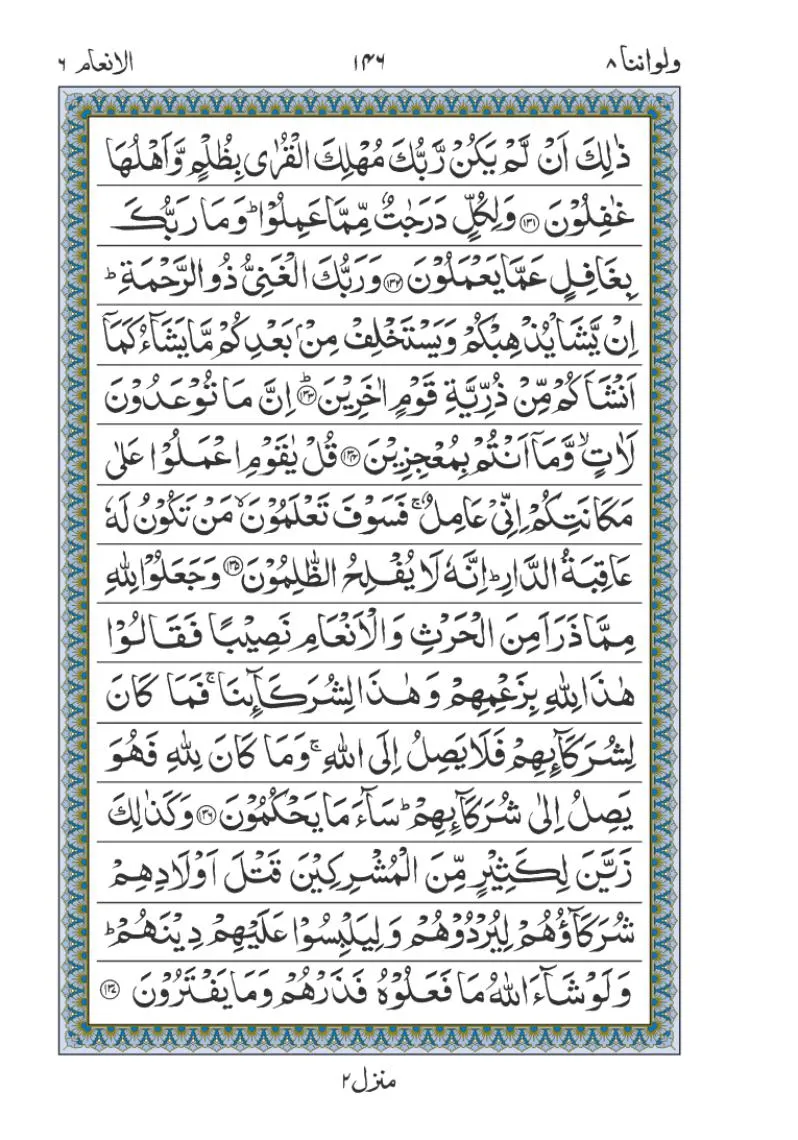 ولواننا ٨ ١٤٦ الانعام ٦
ذٰلِكَ اَنْ لَّمْ يَكُنْ رَّبُّكَ مُهْلِكَ الْقُرٰى بِظُلْمٍ وَّاَهْلُهَا
غٰفِلُوْنَ ﴿١٣١﴾ وَلِكُلٍّ دَرَجٰتٌ مِّمَّا عَمِلُوْا ؕ وَمَا رَبُّكَ
بِغَافِلٍ عَمَّا يَعْمَلُوْنَ ﴿١٣٢﴾ وَرَبُّكَ الْغَنِىُّ ذُو الرَّحْمَةِ ؕ
اِنْ يَّشَاْ يُذْهِبْكُمْ وَيَسْتَخْلِفْ مِنْۢ بَعْدِكُمْ مَّا يَشَآءُ كَمَاۤ
اَنْشَاَكُمْ مِّنْ ذُرِّيَّةِ قَوْمٍ اٰخَرِيْنَ ؕ﴿١٣٣﴾ اِنَّ مَا تُوْعَدُوْنَ
لَاٰتٍ ۙ وَّمَاۤ اَنْتُمْ بِمُعْجِزِيْنَ ﴿١٣٤﴾ قُلْ يٰقَوْمِ اعْمَلُوْا عَلٰى
مَكَانَتِكُمْ اِنِّىْ عَامِلٌ ۚ فَسَوْفَ تَعْلَمُوْنَ ۙ مَنْ تَكُوْنُ لَهٗ
عَاقِبَةُ الدَّارِ ؕ اِنَّهٗ لَا يُفْلِحُ الظّٰلِمُوْنَ ﴿١٣٥﴾ وَجَعَلُوْا لِلّٰهِ
مِمَّا ذَرَاَ مِنَ الْحَرْثِ وَالْاَنْعَامِ نَصِيْبًا فَقَالُوْا
هٰذَا لِلّٰهِ بِزَعْمِهِمْ وَهٰذَا لِشُرَكَآئِنَا ۚ فَمَا كَانَ
لِشُرَكَآئِهِمْ فَلَا يَصِلُ اِلَى اللّٰهِ ۚ وَمَا كَانَ لِلّٰهِ فَهُوَ
يَصِلُ اِلٰى شُرَكَآئِهِمْ ؕ سَآءَ مَا يَحْكُمُوْنَ ﴿١٣٦﴾ وَكَذٰلِكَ
زَيَّنَ لِكَثِيْرٍ مِّنَ الْمُشْرِكِيْنَ قَتْلَ اَوْلَادِهِمْ
شُرَكَآؤُهُمْ لِيُرْدُوْهُمْ وَلِيَلْبِسُوْا عَلَيْهِمْ دِيْنَهُمْ ؕ
وَلَوْ شَآءَ اللّٰهُ مَا فَعَلُوْهُ فَذَرْهُمْ وَمَا يَفْتَرُوْنَ ﴿١٣٧﴾
منزل ٢